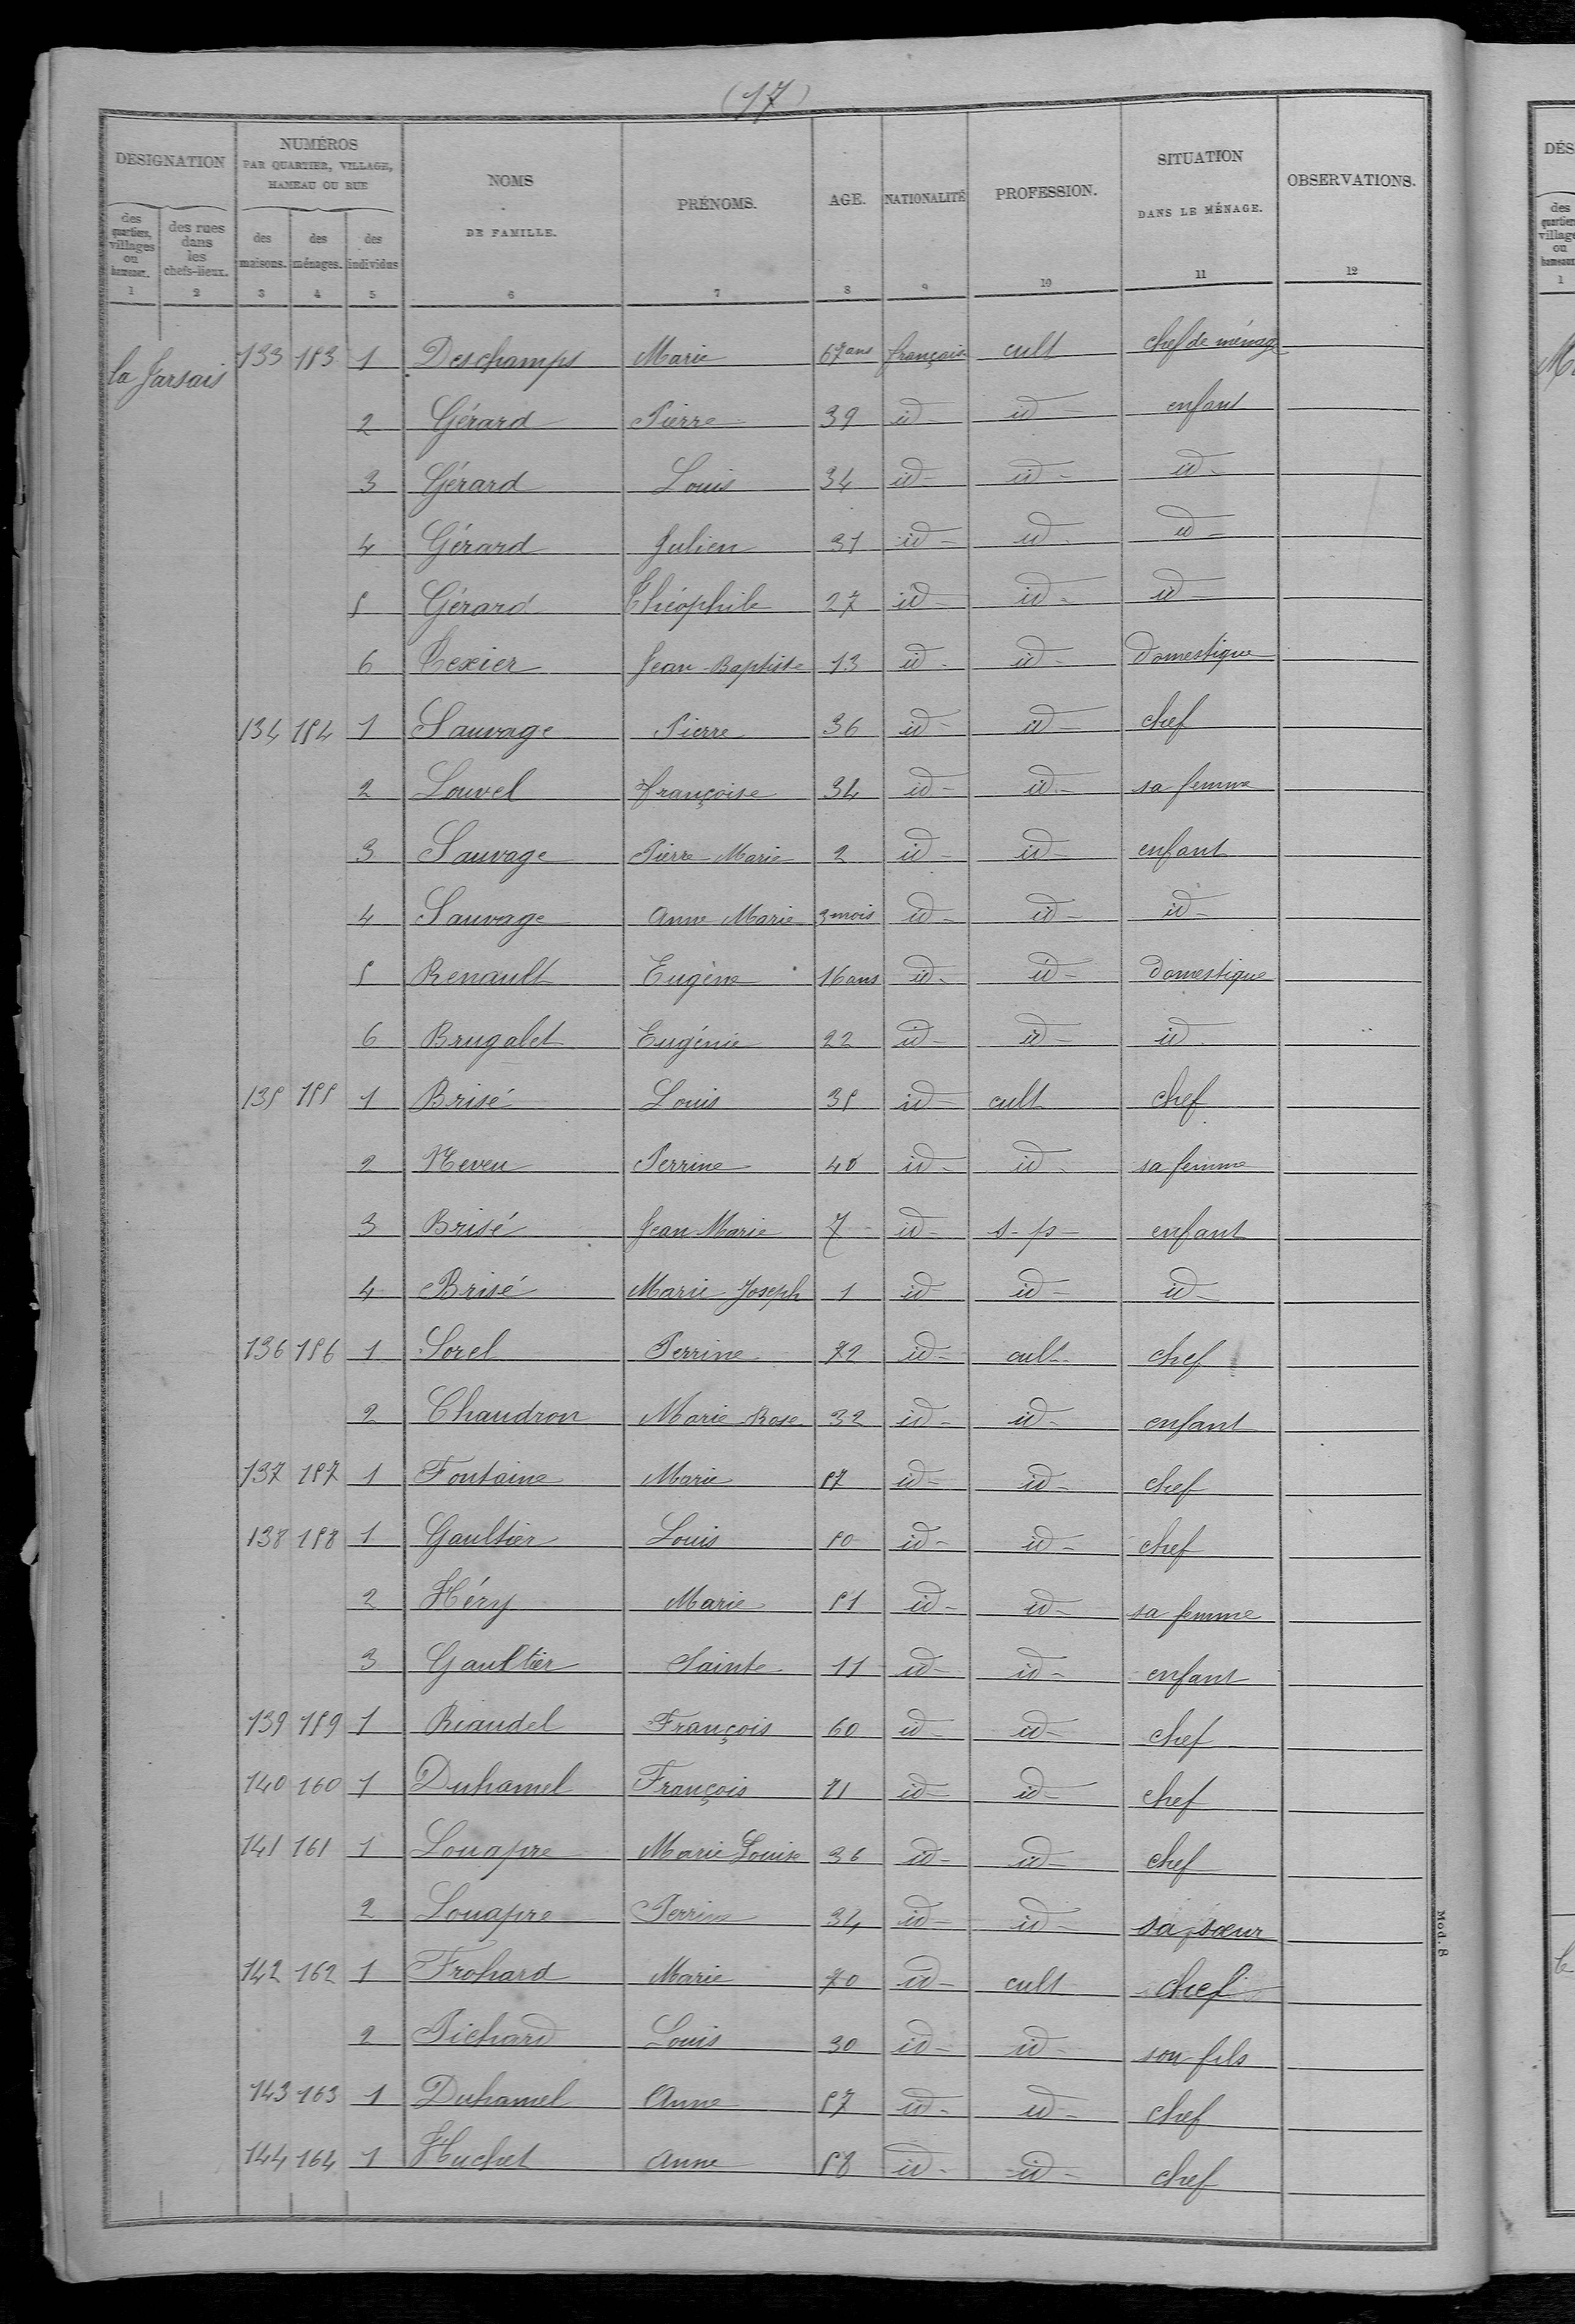 (17)
DÉSIGNATION
NUMÉROS
PAR QUARTIER, VILLAGE,
HAMEAU OU RUE
NOMS
DE FAMILLE.
PRÉNOMS.
AGE.
NATIONALITÉ
PROFESSION.
SITUATION
DANS LE MÉNAGE.
OBSERVATIONS.
des quartiers, villages ou hameaux.
des rues dans les chefs-lieux.
des maisons.
des ménages.
des individus
1 2 3 4 5 6 7 8 9 10 11 12
la Jarsais 133 153 1 Deschamps Marie 67 ans français cult chef de ménage
2 Gérard Pierre 39 id id enfant
3 Gérard Louis 34 id id id
4 Gérard Julien 31 id id id
5 Gérard Théophile 27 id id id
6 Texier Jean-Baptiste 13 id id domestique
134 154 1 Sauvage Pierre 36 id id chef
2 Louvel françoise 34 id id sa femme
3 Sauvage Pierre Marie 2 id id enfant
4 Sauvage Anne Marie 3 mois id id id
5 Renault Eugène 16 ans id id domestique
6 Brugalet Eugénie 22 id id id
135 155 1 Brisé Louis 35 id cult chef
2 Neveu Perrine 40 id id sa femme
3 Brisé Jean-Marie 7 id s-p enfant
4 Brisé Marie-Joseph 1 id id id
136 156 1 Sorel Perrine 72 id cult chef
2 Chaudron Marie-Rose 32 id id enfant
137 157 1 Fontaine Marie 57 id id chef
138 158 1 Gaultier Louis 50 id id chef
2 Héry Marie 51 id id sa femme
3 Gaultier Sainte 11 id id enfant
139 159 1 Riaudel François 60 id id chef
140 160 1 Duhamel François 71 id id chef
141 161 1 Louapre Marie Louise 36 id id chef
2 Louapre Perrine 34 id id sa sœur
142 162 1 Frohard Marie 70 id cult chef
2 Pichard Louis 30 id id son fils
143 163 1 Duhamel Anne 57 id id chef
144 164 1 Huchet Anne 58 id id chef
Mod. 8
DÉS
des quartier village ou hameaux
1